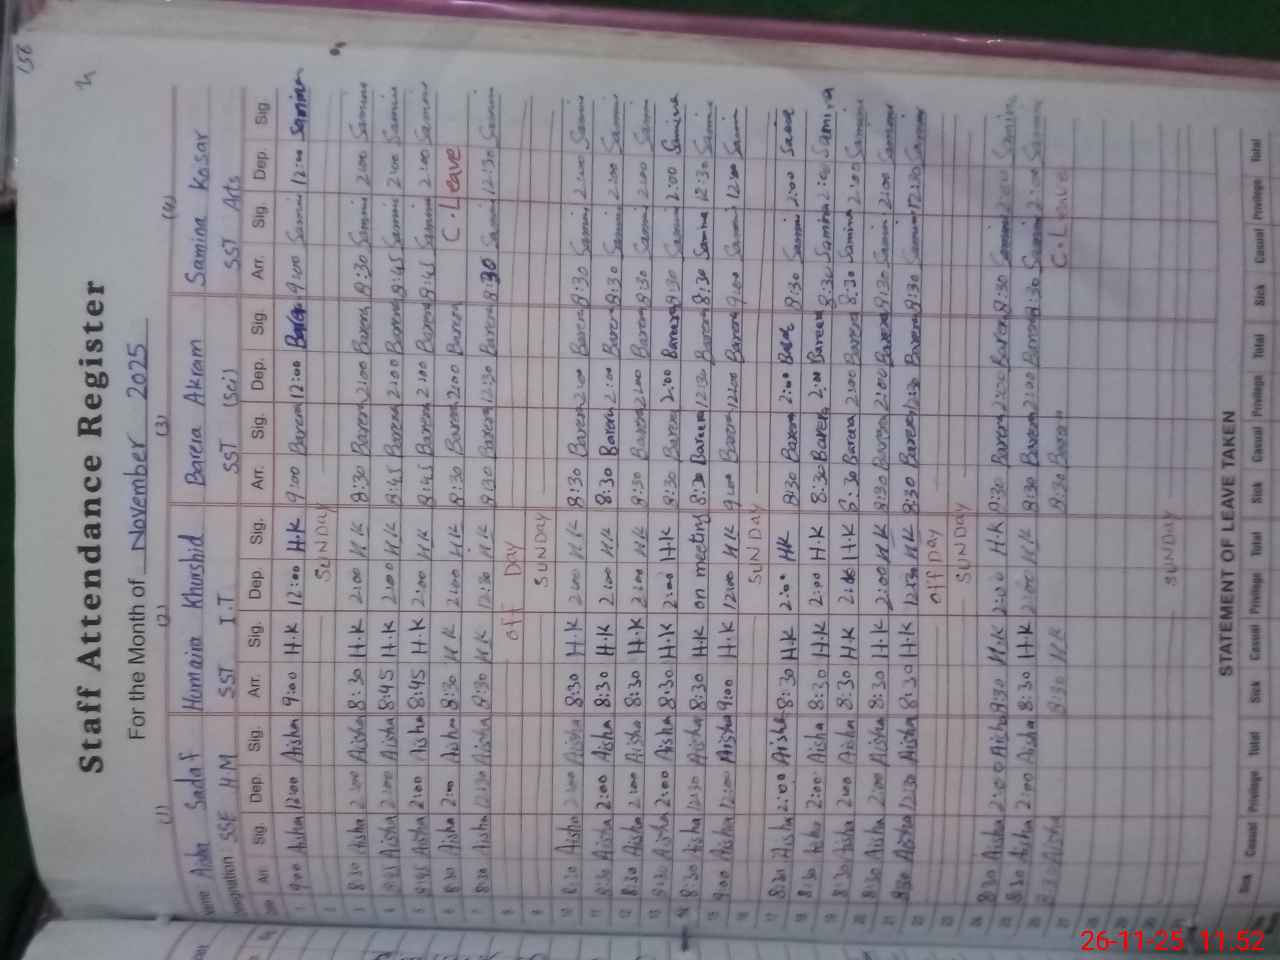 156
Staff Attendance Register
For the Month of November 2025
(1) (2) (3) (4)
Name Aisha Sadaf Humaira Khurshid Barera Akram Samina Kosar
Designation SSE H.M SST I.T SST (Sci) SST Arts
Date Arr. Sig. Dep. Sig. Arr. Sig. Dep. Sig. Arr. Sig. Dep. Sig. Arr. Sig. Dep. Sig.
1 9:00 Aisha 12:00 Aisha 9:00 H.K 12:00 H.K 9:00 Barera 12:00 Barera 9:00 Samina 12:00 Samina
2 SUNDAY
3 8:30 Aisha 2:00 Aisha 8:30 H.K 2:00 H.K 8:30 Barera 2:00 Barera 8:30 Samina 2:00 Samina
4 8:45 Aisha 2:00 Aisha 8:45 H.K 2:00 H.K 8:45 Barera 2:00 Barera 8:45 Samina 2:00 Samina
5 8:45 Aisha 2:00 Aisha 8:45 H.K 2:00 H.K 8:45 Barera 2:00 Barera 8:45 Samina 2:00 Samina
6 8:30 Aisha 2:00 Aisha 8:30 H.K 2:00 H.K 8:30 Barera 2:00 Barera C.Leave
7 8:30 Aisha 12:30 Aisha 8:30 H.K 12:30 H.K 8:30 Barera 12:30 Barera 8:30 Samina 12:30 Samina
8 off Day
9 SUNDAY
10 8:30 Aisha 2:00 Aisha 8:30 H.K 2:00 H.K 8:30 Barera 2:00 Barera 8:30 Samina 2:00 Samina
11 8:30 Aisha 2:00 Aisha 8:30 H.K 2:00 H.K 8:30 Barera 2:00 Barera 8:30 Samina 2:00 Samina
12 8:30 Aisha 2:00 Aisha 8:30 H.K 2:00 H.K 8:30 Barera 2:00 Barera 8:30 Samina 2:00 Samina
13 8:30 Aisha 2:00 Aisha 8:30 H.K 2:00 H.K 8:30 Barera 2:00 Barera 8:30 Samina 2:00 Samina
14 8:30 Aisha 12:30 Aisha 8:30 H.K on meeting 8:30 Bareera 12:30 Barera 8:30 Samina 12:30 Samina
15 9:00 Aisha 12:00 Aisha 9:00 H.K 12:00 H.K 9:00 Barera 12:00 Barera 9:00 Samina 12:00 Samina
16 SUNDAY
17 8:30 Aisha 2:00 Aisha 8:30 H.K 2:00 HK 8:30 Barera 2:00 8:30 Samina 2:00
18 8:30 Aisha 2:00 Aisha 8:30 H.K 2:00 H.K 8:30 Barera 2:00 Bareera 8:30 Samina 2:00 Samira
19 8:30 Aisha 2:00 Aisha 8:30 H.K 2:00 H.K 8:30 Barera 2:00 Barera 8:30 Samina 2:00 Samina
20 8:30 Aisha 2:00 Aisha 8:30 H.K 2:00 H.K 8:30 Barera 2:00 Barera 8:30 Samina 2:00 Samina
21 8:30 Aisha 12:30 Aisha 8:30 H.K 12:30 H.K 8:30 Barera 12:30 Barera 8:30 Samina 12:30 Samina
22
23 off Day
24 SUNDAY
25 8:30 Aisha 2:00 Aisha 8:30 H.K 2:00 H.K 8:30 Barera 2:00 Barera 8:30 Samina 2:00 Samina
26 8:30 Aisha 2:00 Aisha 8:30 H.K 2:00 H.K 8:30 Barera 2:00 Barera 8:30 Samina 2:00 Samina
27 8:30 Aisha 8:30 H.K 8:30 Barera C.Leave
28
29
30
31 SUNDAY
STATEMENT OF LEAVE TAKEN
Sick Casual Privilege Total Sick Casual Privilege Total Sick Casual Privilege Total Sick Casual Privilege Total
Sick Casual Privilege Total Sick Casual Privilege Total Sick Casual Privilege Total Sick Casual Privilege Total
26-11-25 11:52